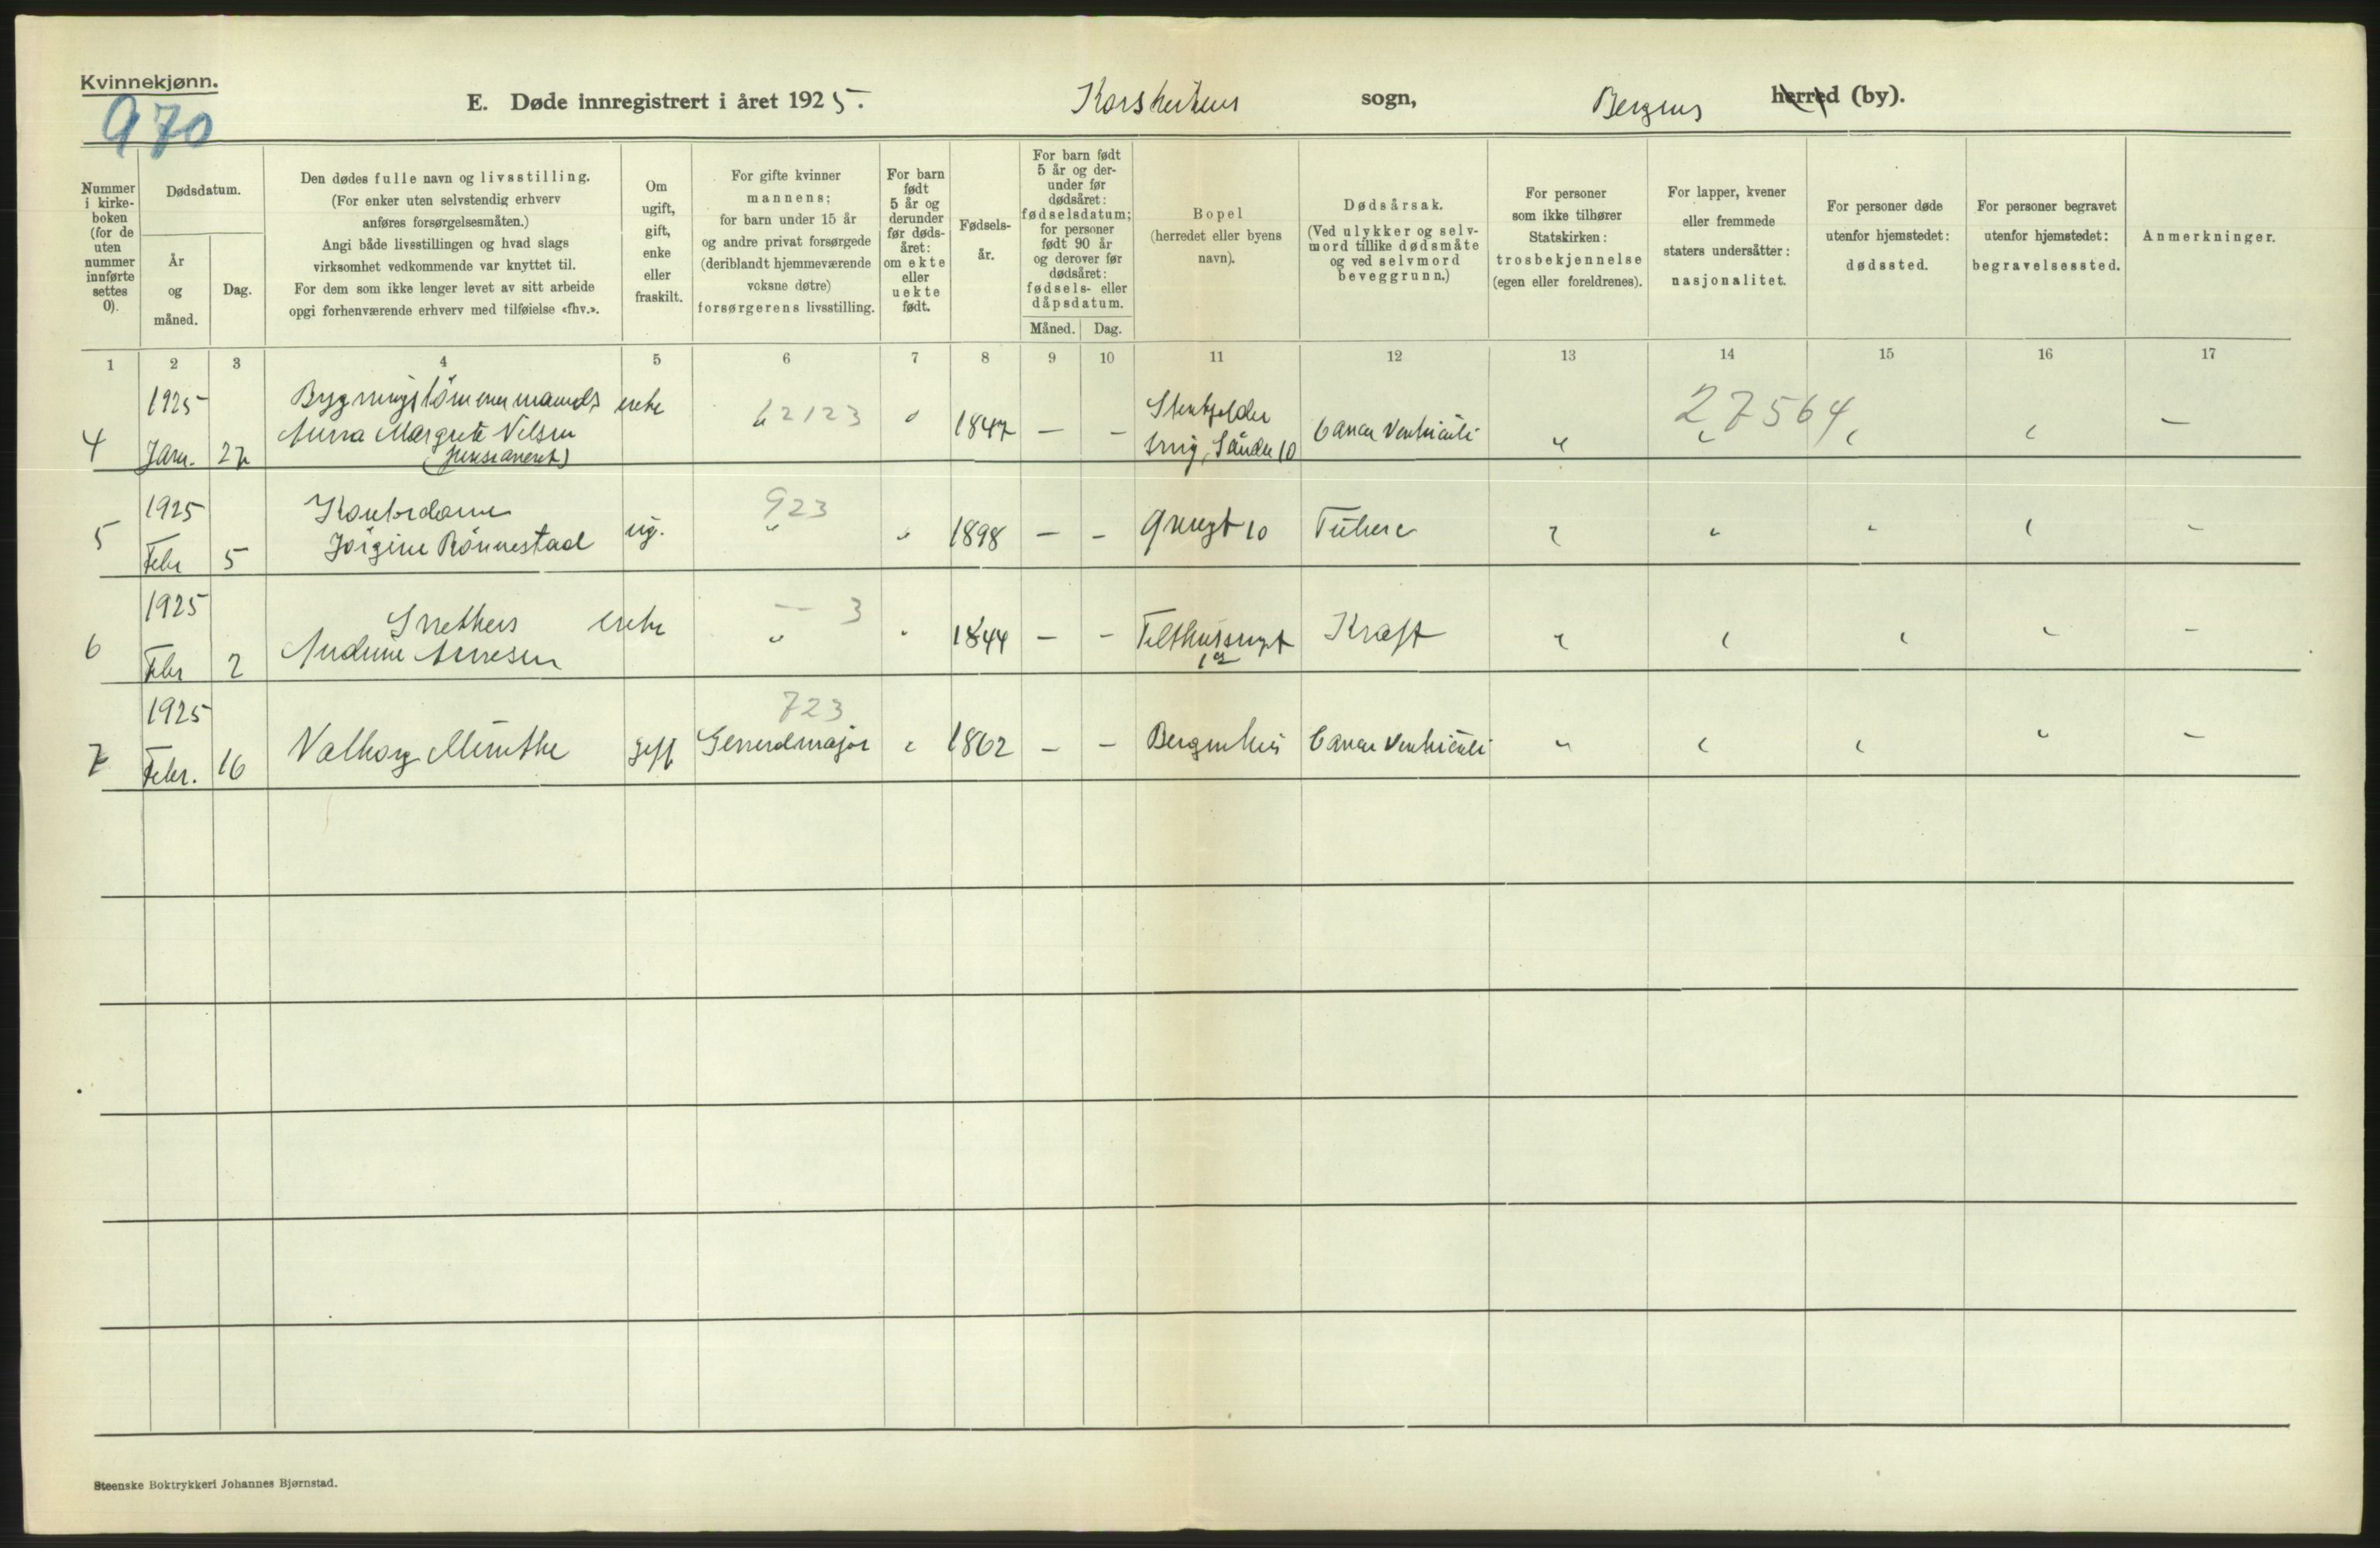 Kvinnekjønn.
970
E. Døde innregistrert i året 1925. Korskirkens sogn, Bergens herred (by).
Nummer
i kirke-
boken
(for de
uten
nummer
innførte
settes
0).
Dødsdatum.
År
og
måned.
Dag.
Den dødes fulle navn og livsstilling.
(For enker uten selvstendig erhverv
anføres forsørgelsesmåten.)
Angi både livsstillingen og hvad slags
virksomhet vedkommende var knyttet til.
For dem som ikke lenger levet av sitt arbeide
opgi forhenværende erhverv med tilføielse «fhv.».
Om
ugift,
gift,
enke
eller
fraskilt.
For gifte kvinner
mannens;
for barn under 15 år
og andre privat forsørgede
(deriblandt hjemmeværende
voksne døtre)
forsørgerens livsstilling.
For barn
født
5 år og
derunder
før døds-
året:
om ekte
eller
uekte
født.
Fødsels-
år.
For barn født
5 år og der-
under før
dødsåret:
fødselsdatum;
for personer
født 90 år
og derover før
dødsåret:
fødsels- eller
dåpsdatum.
Måned. Dag.
Bopel
(herredet eller byens
navn).
Dødsårsak.
(Ved ulykker og selv-
mord tillike dødsmåte
og ved selvmord
beveggrunn.)
For personer
som ikke tilhører
Statskirken:
trosbekjennelse
(egen eller foreldrenes).
For lapper, kvener
eller fremmede
staters undersåtter:
nasjonalitet.
For personer døde
utenfor hjemstedet:
dødssted.
For personer begravet
utenfor hjemstedet:
begravelsessted.
Anmerkninger.
1 2 3 4 5 6 7 8 9 10 11 12 13 14 15 16 17
1925 Bygningstömmermands enke 12123 27564
4 Jan. 27 Anna Margrete Nilsen 1847 — — 10 Cancer Ventriculi „ „ „ „ —
(pensioneret)
1925 Kontordame 923
5 Febr 5 Jörgine Rönnestad ug. „ „ 1898 — — 10 Tuberc „ „ „ „ —
1925 Snedkers enke — 3
6 Febr 2 Andrine Arnesen „ „ 1844 — — Kraft „ „ „ „ —
1925 723
7 Febr. 16 Valborg Munthe gift Generalmajor „ 1862 — — Bergenhus Cancer Ventriculi „ „ „ „ —
Steenske Boktrykkeri Johannes Bjørnstad.